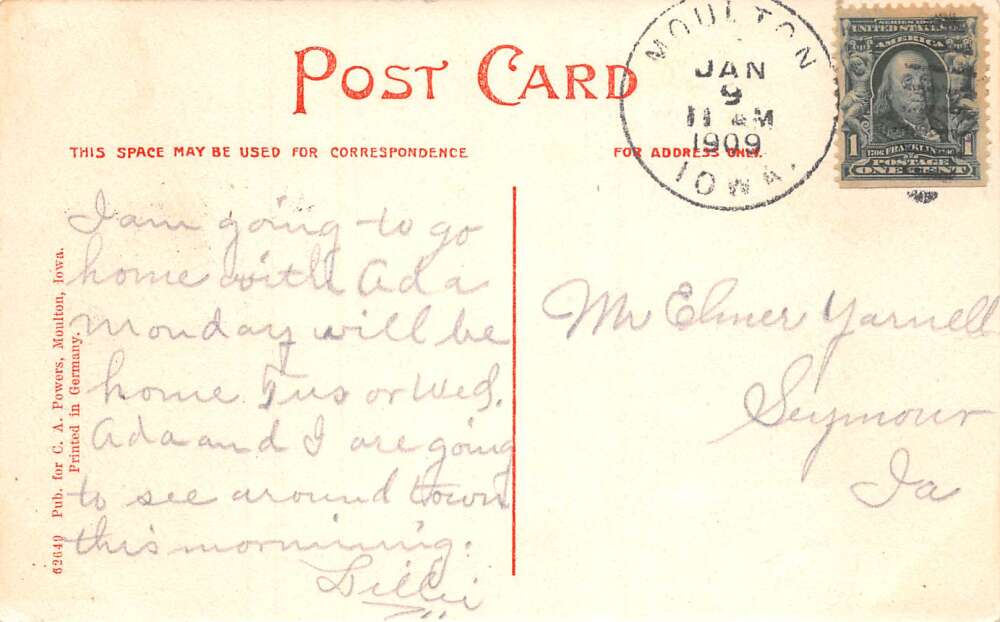 POST CARD
THIS SPACE MAY BE USED FOR CORRESPONDENCE
FOR ADDRESS ONLY.
MOULTON
JAN
9
11 AM
1909
IOWA.
SERIES 1902
UNITED STATES OF
AMERICA
1706 FRANKLIN 1790
1 POSTAGE 1
ONE CENT
I am going to go
home with Ada
monday will be
home Tus or Wed.
Ada and I are going
to see around town
this mornining.
Lillie
Mr Elmer Yarnell
Seymour
Ia
62649 Pub. for C. A. Powers, Moulton, Iowa.
Printed in Germany.